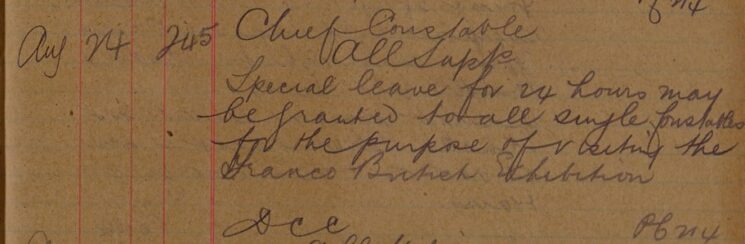 Aug 24 245 Chief Constable
All Supts
Special leave for 24 hours may
be granted to all single Constables
for the purpose of visiting the
Franco British Exhibition
DCC